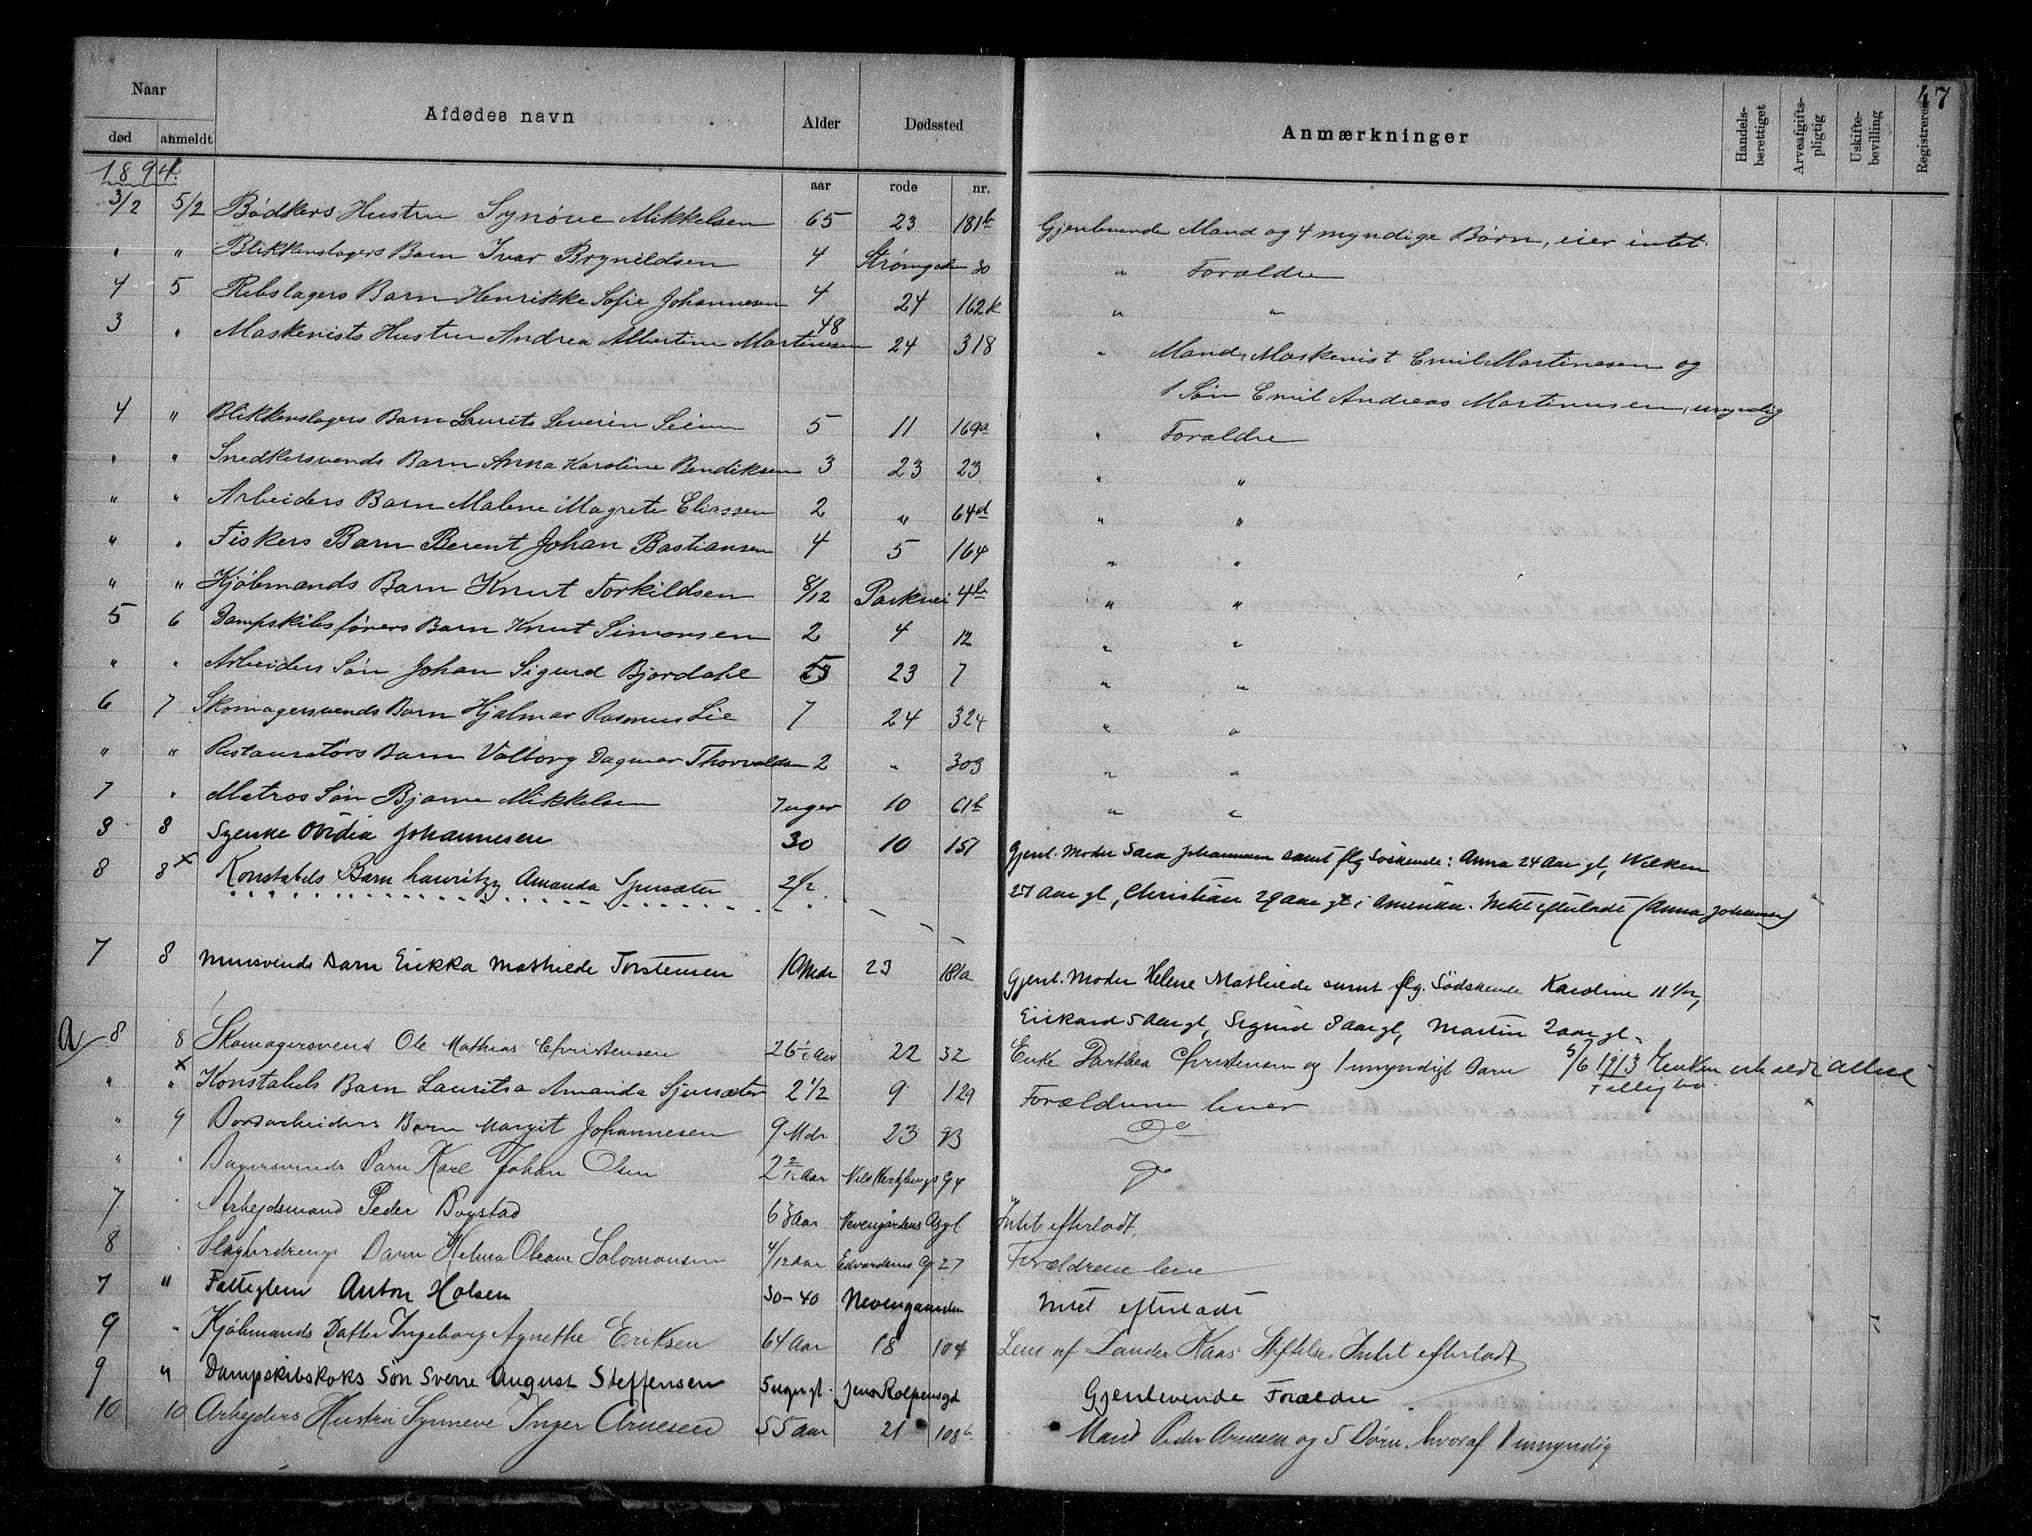 47
Naar
Afdødes navn
Alder
Dødssted
Anmærkninger
Handels-berettiget
Arveafgifts-pligtig
Uskifte-bevilling
Registreret
død anmeldt
aar rode nr.
1894.
3/2 5/2 Bødkers Hustru Synøve Mikkelsen 65 23 181b Gjenlevende Mand og 4 myndige Børn, eier intet.
" " Blikkenslagers Barn Ivar Brynildsen 4 Strømgaden 30 " Forældre
4 5 Rebslagers Barn Henrikke Sofie Johannesen 4 24 162k " "
3 " Maskenists Hustru Andrea Albertine Martinesen 48 24 318 " Mand, Maskenist Emil Martinesen og
1 Søn Emil Andreas Martinusen, umyndig
4 " Blikkenslagers Barn Laurits Severin Seim 5 11 169a " Forældre
" " Snedkersvends Barn Anna Karoline Bendiksen 3 23 23 " "
" " Arbeiders Barn Malene Magrete Eliassen 2 " 64d " "
" " Fiskers Barn Berent Johan Bastiansen 4 5 164 " "
" " Kjøbmands Barn Knut Torkildsen 8/12 Parkvei 4b " "
5 6 Dampskibsførers Barn Knut Simonsen 2 4 12 " "
" " Arbeiders Søn Johan Sigurd Bjordahl 5 23 7 " "
6 7 Skomagersvends Barn Hjalmar Rasmus Lie 7 24 324 " "
" " Restauratørs Barn Valborg Dagmar Thorvaldsen 2 " 309 " "
7 " Matros Søn Bjarne Mikkelsen 7 uger 10 61b " "
3 8 Syerske Ovidia Johannesen 30 10 157 Gjenl. Moder Sara Johannesen samt flg Søskende: Anna 24 Aar gl, Wilken
8 8 x Konstabels Barn Lauritzy Amanda Sjursæter 2 1/2 27 Aar gl, Christian 29 Aar gl i Amerika. Intet efterladt (Anna Johannesen)
7 8 Mursvends Barn Erikka Mathilde Torstensen 10 Mdr 23 181a Gjenl. Moder Helene Mathilde samt flg. Sødskende Karoline 11 1/2,
Erikard 5 Aar gl, Sigurd 8 aar gl, Martin 2 aar gl.
A 8 8 Skomagersvend Ole Mathias Christensen 26 1/2 Aar 22 32 Enke Dorthea Christensen og 1 umyndigt Barn 5/6 1913 Enken alene
" x " Konstabels Barn Lauritsa Amanda Sjursæter 2 1/2 9 129 Forældrene lever
" 9 Bordarbeiders Barn Margit Johannesen 9 Mdr 23 93 Do
" " Bagersvends Barn Karl Johan Olsen Aar 94 Do
7 " Arbejdsmand Peder Bogstad Aar Nevengårdens Asyl Intet efterladt.
8 " Barn Helma Oleane Salomonsen 4/12 Aar Edvardsens G 27 Forældrene leve
7 " Fattiglem Anton Holsen 30-40 Nevengaarden Intet efterladt
9 " Kjøbmands Datter Ingeborg Agnethe Eriksen 64 Aar 18 104 Lem af Zander Kaas Stiftelse. Intet efterladt
9 " Dampskibskoks Søn Sverre August Steffensen 5 uger gl. Jens Rolfsensgd Gjenlevende Forældre
10 10 Arbejders Hustru Synneve Inger Arnesen 55 Aar 21 108b Mand Peder Arnesen og 5 Børn, hvoraf 1 umyndig